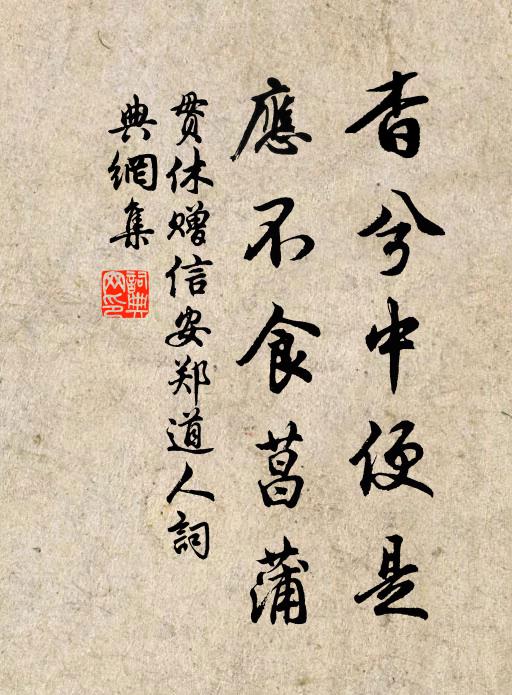 杳兮中便是
應不食菖蒲
貫休贈信安郑道人詞
典網集
詞典
网印